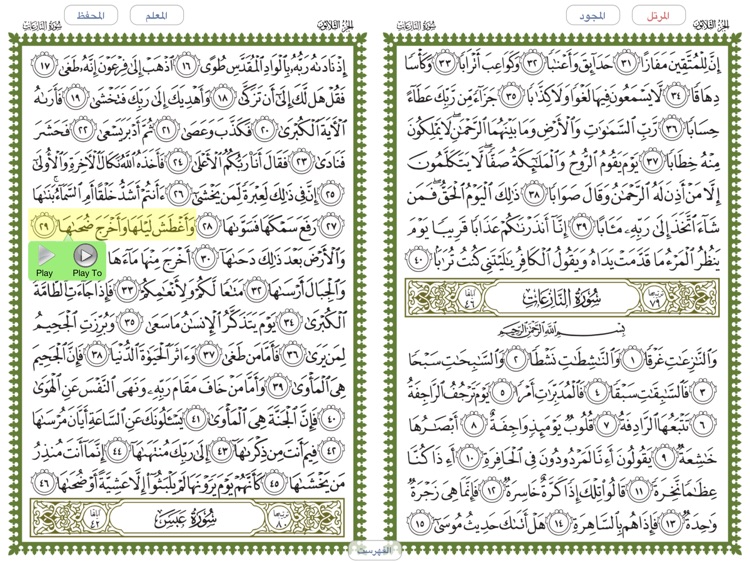 الجزء الثلاثون
المرتل
المجود
سورة النازعات
إِنَّ لِلْمُتَّقِينَ مَفَازًا ٣١ حَدَآئِقَ وَأَعْنَٰبًا ٣٢ وَكَوَاعِبَ أَتْرَابًا ٣٣ وَكَأْسًا
دِهَاقًا ٣٤ لَّا يَسْمَعُونَ فِيهَا لَغْوًا وَلَا كِذَّٰبًا ٣٥ جَزَآءً مِّن رَّبِّكَ عَطَآءً
حِسَابًا ٣٦ رَّبِّ ٱلسَّمَٰوَٰتِ وَٱلْأَرْضِ وَمَا بَيْنَهُمَا ٱلرَّحْمَٰنِ ۖ لَا يَمْلِكُونَ
مِنْهُ خِطَابًا ٣٧ يَوْمَ يَقُومُ ٱلرُّوحُ وَٱلْمَلَٰٓئِكَةُ صَفًّا ۖ لَّا يَتَكَلَّمُونَ
إِلَّا مَنْ أَذِنَ لَهُ ٱلرَّحْمَٰنُ وَقَالَ صَوَابًا ٣٨ ذَٰلِكَ ٱلْيَوْمُ ٱلْحَقُّ ۖ فَمَن
شَآءَ ٱتَّخَذَ إِلَىٰ رَبِّهِۦ مَـَٔابًا ٣٩ إِنَّآ أَنذَرْنَٰكُمْ عَذَابًا قَرِيبًا يَوْمَ
يَنظُرُ ٱلْمَرْءُ مَا قَدَّمَتْ يَدَاهُ وَيَقُولُ ٱلْكَافِرُ يَٰلَيْتَنِى كُنتُ تُرَٰبًۢا ٤٠
ترتيبها ٧٩ سُورَةُ النَّازِعَاتِ آياتها ٤٦
بِسْمِ ٱللَّهِ ٱلرَّحْمَٰنِ ٱلرَّحِيمِ
وَٱلنَّٰزِعَٰتِ غَرْقًا ١ وَٱلنَّٰشِطَٰتِ نَشْطًا ٢ وَٱلسَّٰبِحَٰتِ سَبْحًا
٣ فَٱلسَّٰبِقَٰتِ سَبْقًا ٤ فَٱلْمُدَبِّرَٰتِ أَمْرًا ٥ يَوْمَ تَرْجُفُ ٱلرَّاجِفَةُ
٦ تَتْبَعُهَا ٱلرَّادِفَةُ ٧ قُلُوبٌ يَوْمَئِذٍ وَاجِفَةٌ ٨ أَبْصَٰرُهَا
خَٰشِعَةٌ ٩ يَقُولُونَ أَءِنَّا لَمَرْدُودُونَ فِى ٱلْحَافِرَةِ ١٠ أَءِذَا كُنَّا
عِظَٰمًا نَّخِرَةً ١١ قَالُوا۟ تِلْكَ إِذًا كَرَّةٌ خَاسِرَةٌ ١٢ فَإِنَّمَا هِىَ زَجْرَةٌ
وَٰحِدَةٌ ١٣ فَإِذَا هُم بِٱلسَّاهِرَةِ ١٤ هَلْ أَتَىٰكَ حَدِيثُ مُوسَىٰٓ ١٥
الجزء الثلاثون
المعلم
المحفظ
سورة النازعات
إِذْ نَادَىٰهُ رَبُّهُۥ بِٱلْوَادِ ٱلْمُقَدَّسِ طُوًى ١٦ ٱذْهَبْ إِلَىٰ فِرْعَوْنَ إِنَّهُۥ طَغَىٰ ١٧
فَقُلْ هَل لَّكَ إِلَىٰٓ أَن تَزَكَّىٰ ١٨ وَأَهْدِيَكَ إِلَىٰ رَبِّكَ فَتَخْشَىٰ ١٩ فَأَرَىٰهُ
ٱلْـَٔايَةَ ٱلْكُبْرَىٰ ٢٠ فَكَذَّبَ وَعَصَىٰ ٢١ ثُمَّ أَدْبَرَ يَسْعَىٰ ٢٢ فَحَشَرَ
فَنَادَىٰ ٢٣ فَقَالَ أَنَا۠ رَبُّكُمُ ٱلْأَعْلَىٰ ٢٤ فَأَخَذَهُ ٱللَّهُ نَكَالَ ٱلْـَٔاخِرَةِ وَٱلْأُولَىٰٓ
٢٥ إِنَّ فِى ذَٰلِكَ لَعِبْرَةً لِّمَن يَخْشَىٰٓ ٢٦ ءَأَنتُمْ أَشَدُّ خَلْقًا أَمِ ٱلسَّمَآءُ ۚ بَنَىٰهَا
٢٧ رَفَعَ سَمْكَهَا فَسَوَّىٰهَا ٢٨ وَأَغْطَشَ لَيْلَهَا وَأَخْرَجَ ضُحَىٰهَا ٢٩
وَٱلْأَرْضَ بَعْدَ ذَٰلِكَ دَحَىٰهَآ ٣٠ أَخْرَجَ مِنْهَا مَآءَهَا
Play
Play To
وَٱلْجِبَالَ أَرْسَىٰهَا ٣٢ مَتَٰعًا لَّكُمْ وَلِأَنْعَٰمِكُمْ ٣٣ فَإِذَا جَآءَتِ ٱلطَّآمَّةُ
ٱلْكُبْرَىٰ ٣٤ يَوْمَ يَتَذَكَّرُ ٱلْإِنسَٰنُ مَا سَعَىٰ ٣٥ وَبُرِّزَتِ ٱلْجَحِيمُ
لِمَن يَرَىٰ ٣٦ فَأَمَّا مَن طَغَىٰ ٣٧ وَءَاثَرَ ٱلْحَيَوٰةَ ٱلدُّنْيَا ٣٨ فَإِنَّ ٱلْجَحِيمَ
هِىَ ٱلْمَأْوَىٰ ٣٩ وَأَمَّا مَنْ خَافَ مَقَامَ رَبِّهِۦ وَنَهَى ٱلنَّفْسَ عَنِ ٱلْهَوَىٰ
٤٠ فَإِنَّ ٱلْجَنَّةَ هِىَ ٱلْمَأْوَىٰ ٤١ يَسْـَٔلُونَكَ عَنِ ٱلسَّاعَةِ أَيَّانَ مُرْسَىٰهَا
٤٢ فِيمَ أَنتَ مِن ذِكْرَىٰهَآ ٤٣ إِلَىٰ رَبِّكَ مُنتَهَىٰهَآ ٤٤ إِنَّمَآ أَنتَ مُنذِرُ
مَن يَخْشَىٰهَا ٤٥ كَأَنَّهُمْ يَوْمَ يَرَوْنَهَا لَمْ يَلْبَثُوٓا۟ إِلَّا عَشِيَّةً أَوْ ضُحَىٰهَا ٤٦
ترتيبها ٨٠ سُورَةُ عَبَسَ آياتها ٤٢
الفهرست